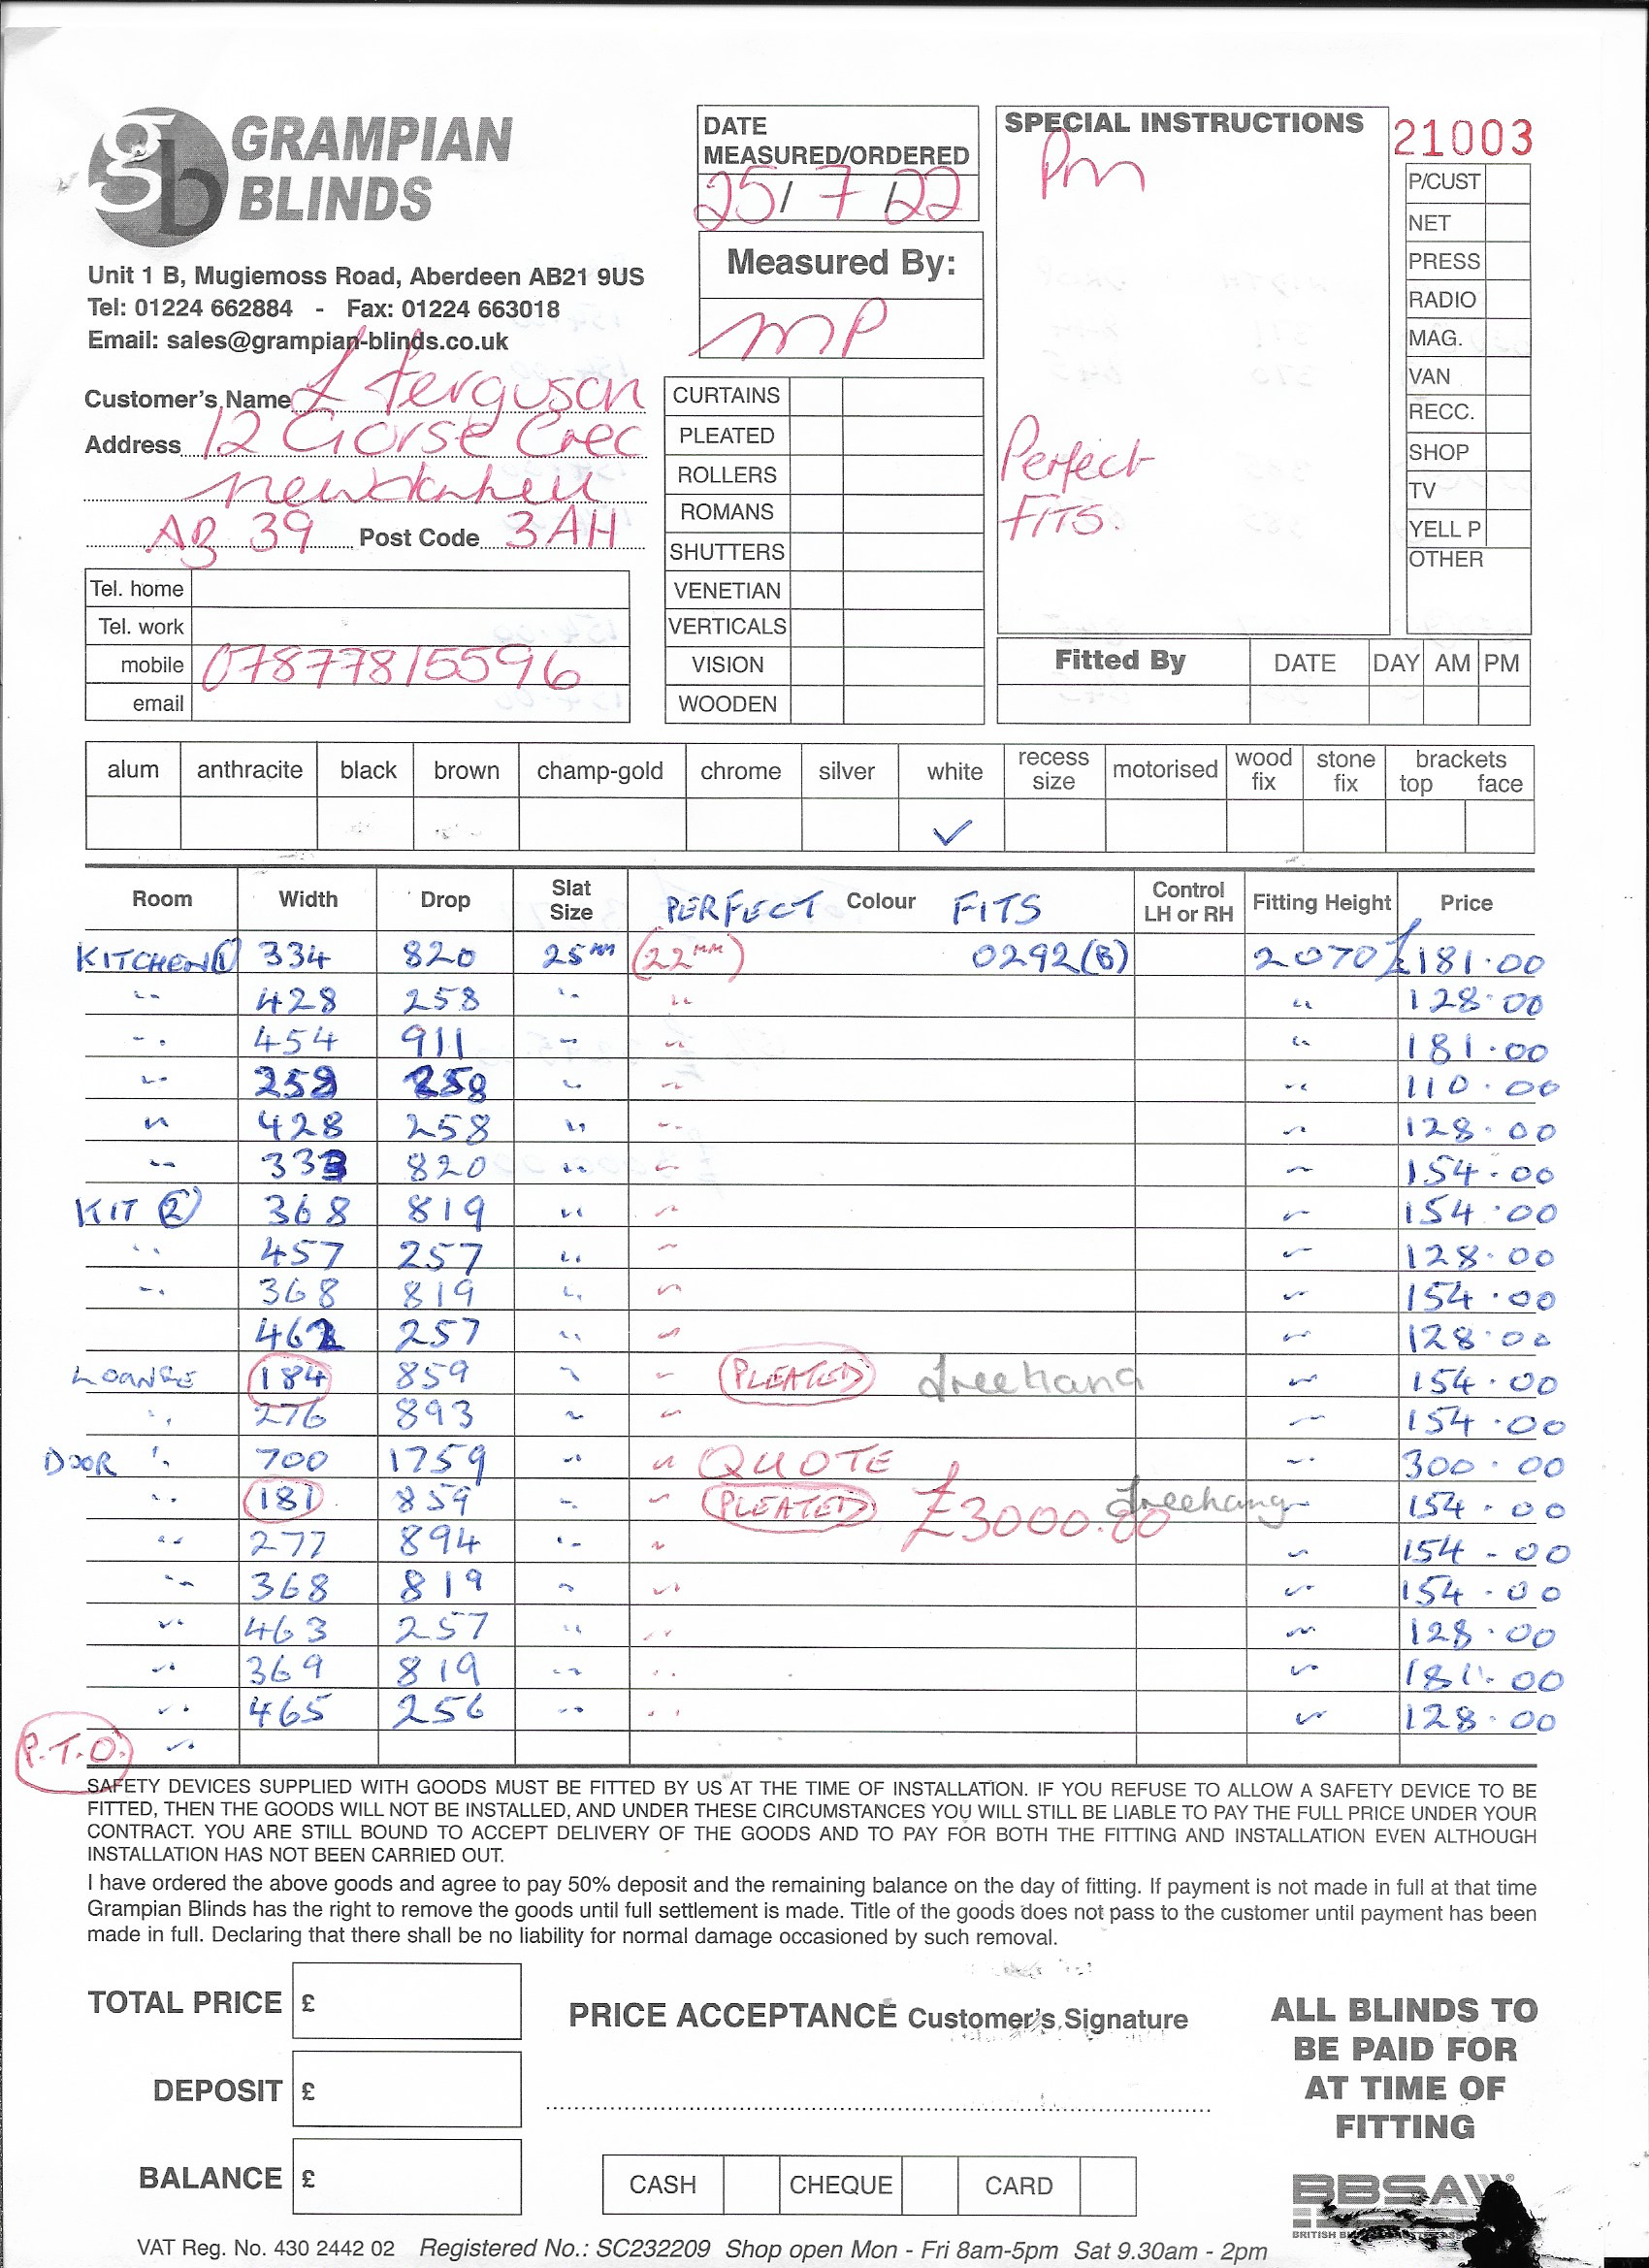 gb GRAMPIAN
BLINDS
Unit 1 B, Mugiemoss Road, Aberdeen AB21 9US
Tel: 01224 662884 - Fax: 01224 663018
Email: sales@grampian-blinds.co.uk
Customer's Name L Ferguson
Address 12 Gorse Crec
AB 39 Post Code 3AH
Tel. home
Tel. work
mobile 07877815596
email
DATE
MEASURED/ORDERED
25/ 7 /22
Measured By:
MP
CURTAINS
PLEATED
ROLLERS
ROMANS
SHUTTERS
VENETIAN
VERTICALS
VISION
WOODEN
SPECIAL INSTRUCTIONS
Pm
Perfect
FITS.
21003
P/CUST
NET
PRESS
RADIO
MAG.
VAN
RECC.
SHOP
TV
YELL P
OTHER
Fitted By DATE DAY AM PM
alum anthracite black brown champ-gold chrome silver white recess size motorised wood fix stone fix brackets top face
✓
Room Width Drop Slat Size PERFECT Colour FITS Control LH or RH Fitting Height Price
KITCHEN (1) 334 820 25mm (22mm) 0292(B) 2070 £181.00
" 428 258 " " " 128.00
" 454 911 " " " 181.00
" 259 258 " " " 110.00
" 428 258 " " " 128.00
" 333 820 " " " 154.00
KIT (2) 368 819 " " " 154.00
" 457 257 " " " 128.00
" 368 819 " " " 154.00
462 257 " " " 128.00
LOANGE 184 859 " " PLEATED freehang " 154.00
" 276 893 " " " 154.00
DOOR " 700 1759 " " QUOTE " 300.00
" 181 859 " " PLEATED £3000.00 freehang " 154.00
" 277 894 " " " 154.00
" 368 819 " " " 154.00
" 463 257 " " " 128.00
" 369 819 " " " 181.00
" 465 256 " " " 128.00
P.T.O. "
SAFETY DEVICES SUPPLIED WITH GOODS MUST BE FITTED BY US AT THE TIME OF INSTALLATION. IF YOU REFUSE TO ALLOW A SAFETY DEVICE TO BE
FITTED, THEN THE GOODS WILL NOT BE INSTALLED, AND UNDER THESE CIRCUMSTANCES YOU WILL STILL BE LIABLE TO PAY THE FULL PRICE UNDER YOUR
CONTRACT. YOU ARE STILL BOUND TO ACCEPT DELIVERY OF THE GOODS AND TO PAY FOR BOTH THE FITTING AND INSTALLATION EVEN ALTHOUGH
INSTALLATION HAS NOT BEEN CARRIED OUT.
I have ordered the above goods and agree to pay 50% deposit and the remaining balance on the day of fitting. If payment is not made in full at that time
Grampian Blinds has the right to remove the goods until full settlement is made. Title of the goods does not pass to the customer until payment has been
made in full. Declaring that there shall be no liability for normal damage occasioned by such removal.
TOTAL PRICE £
DEPOSIT £
BALANCE £
PRICE ACCEPTANCE Customer's Signature
CASH CHEQUE CARD
ALL BLINDS TO
BE PAID FOR
AT TIME OF
FITTING
BBSA
BRITISH
VAT Reg. No. 430 2442 02 Registered No.: SC232209 Shop open Mon - Fri 8am-5pm Sat 9.30am - 2pm